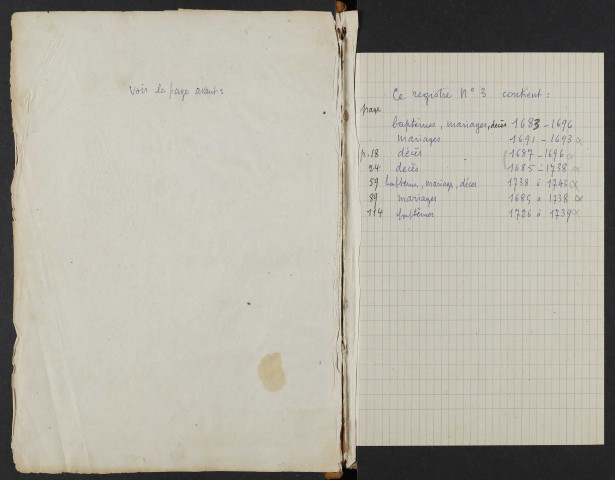 Voir la page avant :
Ce registre N° 3 contient :
page
baptêmes, mariages, décès 1683 - 1696
mariages 1691 - 1693
p. 18 décès 1687 - 1696
24 décès 1685 - 1738
59 baptêmes, mariage, décès 1738 à
89 mariages 1685 à 1738
114 baptêmes 1726 à 1739